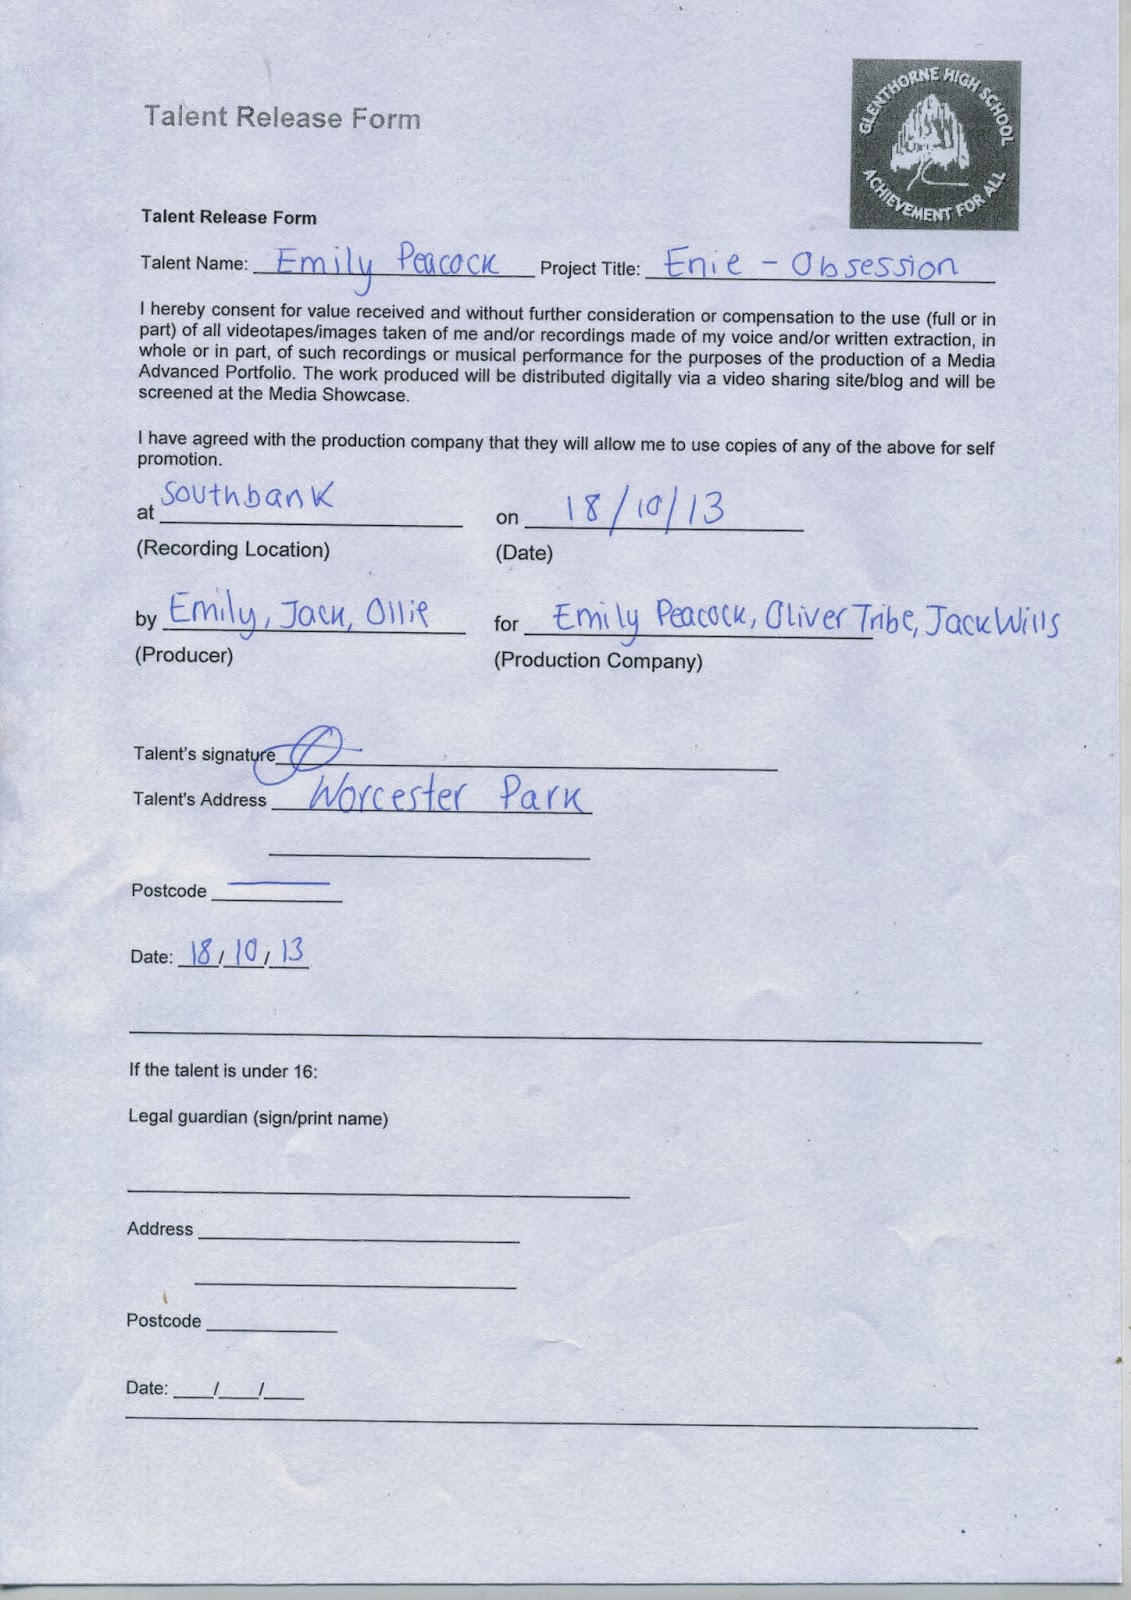 GLENTHORNE HIGH SCHOOL
ACHIEVEMENT FOR ALL
Talent Release Form
Talent Release Form
Talent Name: Emily Peacock Project Title: Enie - Obsession
I hereby consent for value received and without further consideration or compensation to the use (full or in
part) of all videotapes/images taken of me and/or recordings made of my voice and/or written extraction, in
whole or in part, of such recordings or musical performance for the purposes of the production of a Media
Advanced Portfolio. The work produced will be distributed digitally via a video sharing site/blog and will be
screened at the Media Showcase.
I have agreed with the production company that they will allow me to use copies of any of the above for self
promotion.
at Southbank on 18/10/13
(Recording Location) (Date)
by Emily, Jack, Ollie for Emily Peacock, Oliver Tribe, Jack Wills
(Producer) (Production Company)
Talent's signature
Talent's Address Worcester Park
Postcode
Date: 18/10/13
If the talent is under 16:
Legal guardian (sign/print name)
Address
Postcode
Date: / /